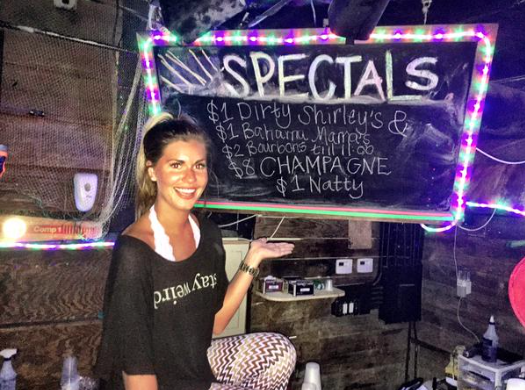 SPECIALS
$1 Dirty Shirley's &
$1 Bahama Mama's
$2 Bourbons till 11:00
$8 CHAMPAGNE
$1 Natty
stay weird